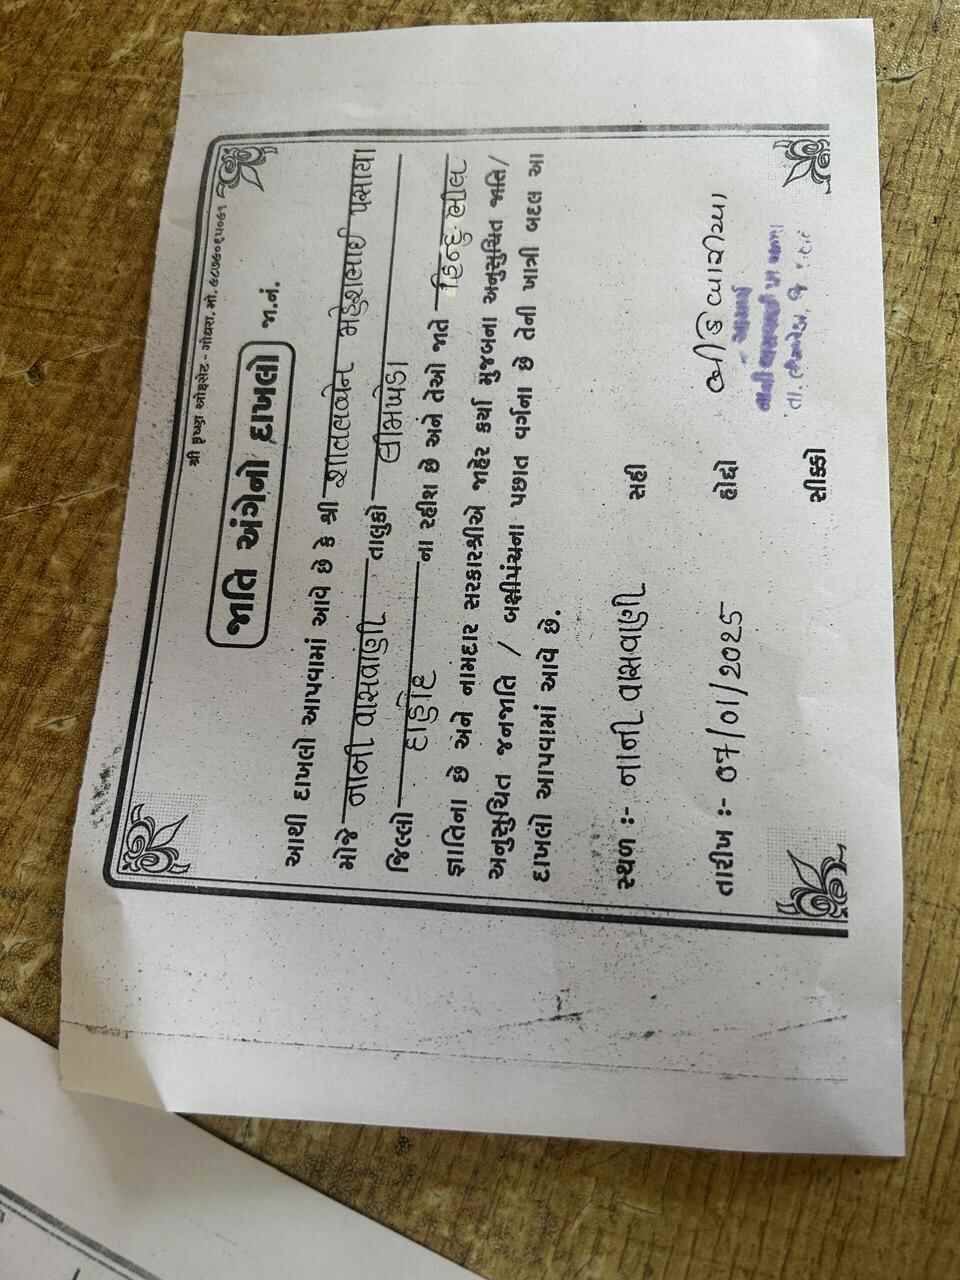 શ્રી કૃષ્ણા ઓફસેટ - ગોધરા. મો. ૯૮૭૯૦૬૫૦૬૧
જાતિ અંગેનો દાખલો
જા.નં.
આથી દાખલો આપવામાં આવે છે કે શ્રી શીતલબેન મહેશભાઈ પસાયા
મોજે નાની વાસવાણી તાલુકો લીમખેડા
જિલ્લો દાહોદ ના રહીશ છે અને તેઓ જાતે હિન્દુ ભીલ
જ્ઞાતિના છે અને નામદાર સરકારશ્રીએ જાહેર કર્યા મુજબના અનુસુચિત જાતિ/
અનુસુચિત જનજાતિ / બક્ષીપંચના પછાત વર્ગના છે તેની ખાત્રી બદલ આ
દાખલો આપવામાં આવે છે.
સ્થળ :- નાની વાસવાણી સહી
તારીખ :- ૦૭/૦૧/૨૦૨૫ હોદ્દો
આચાર્ય
સીક્કો